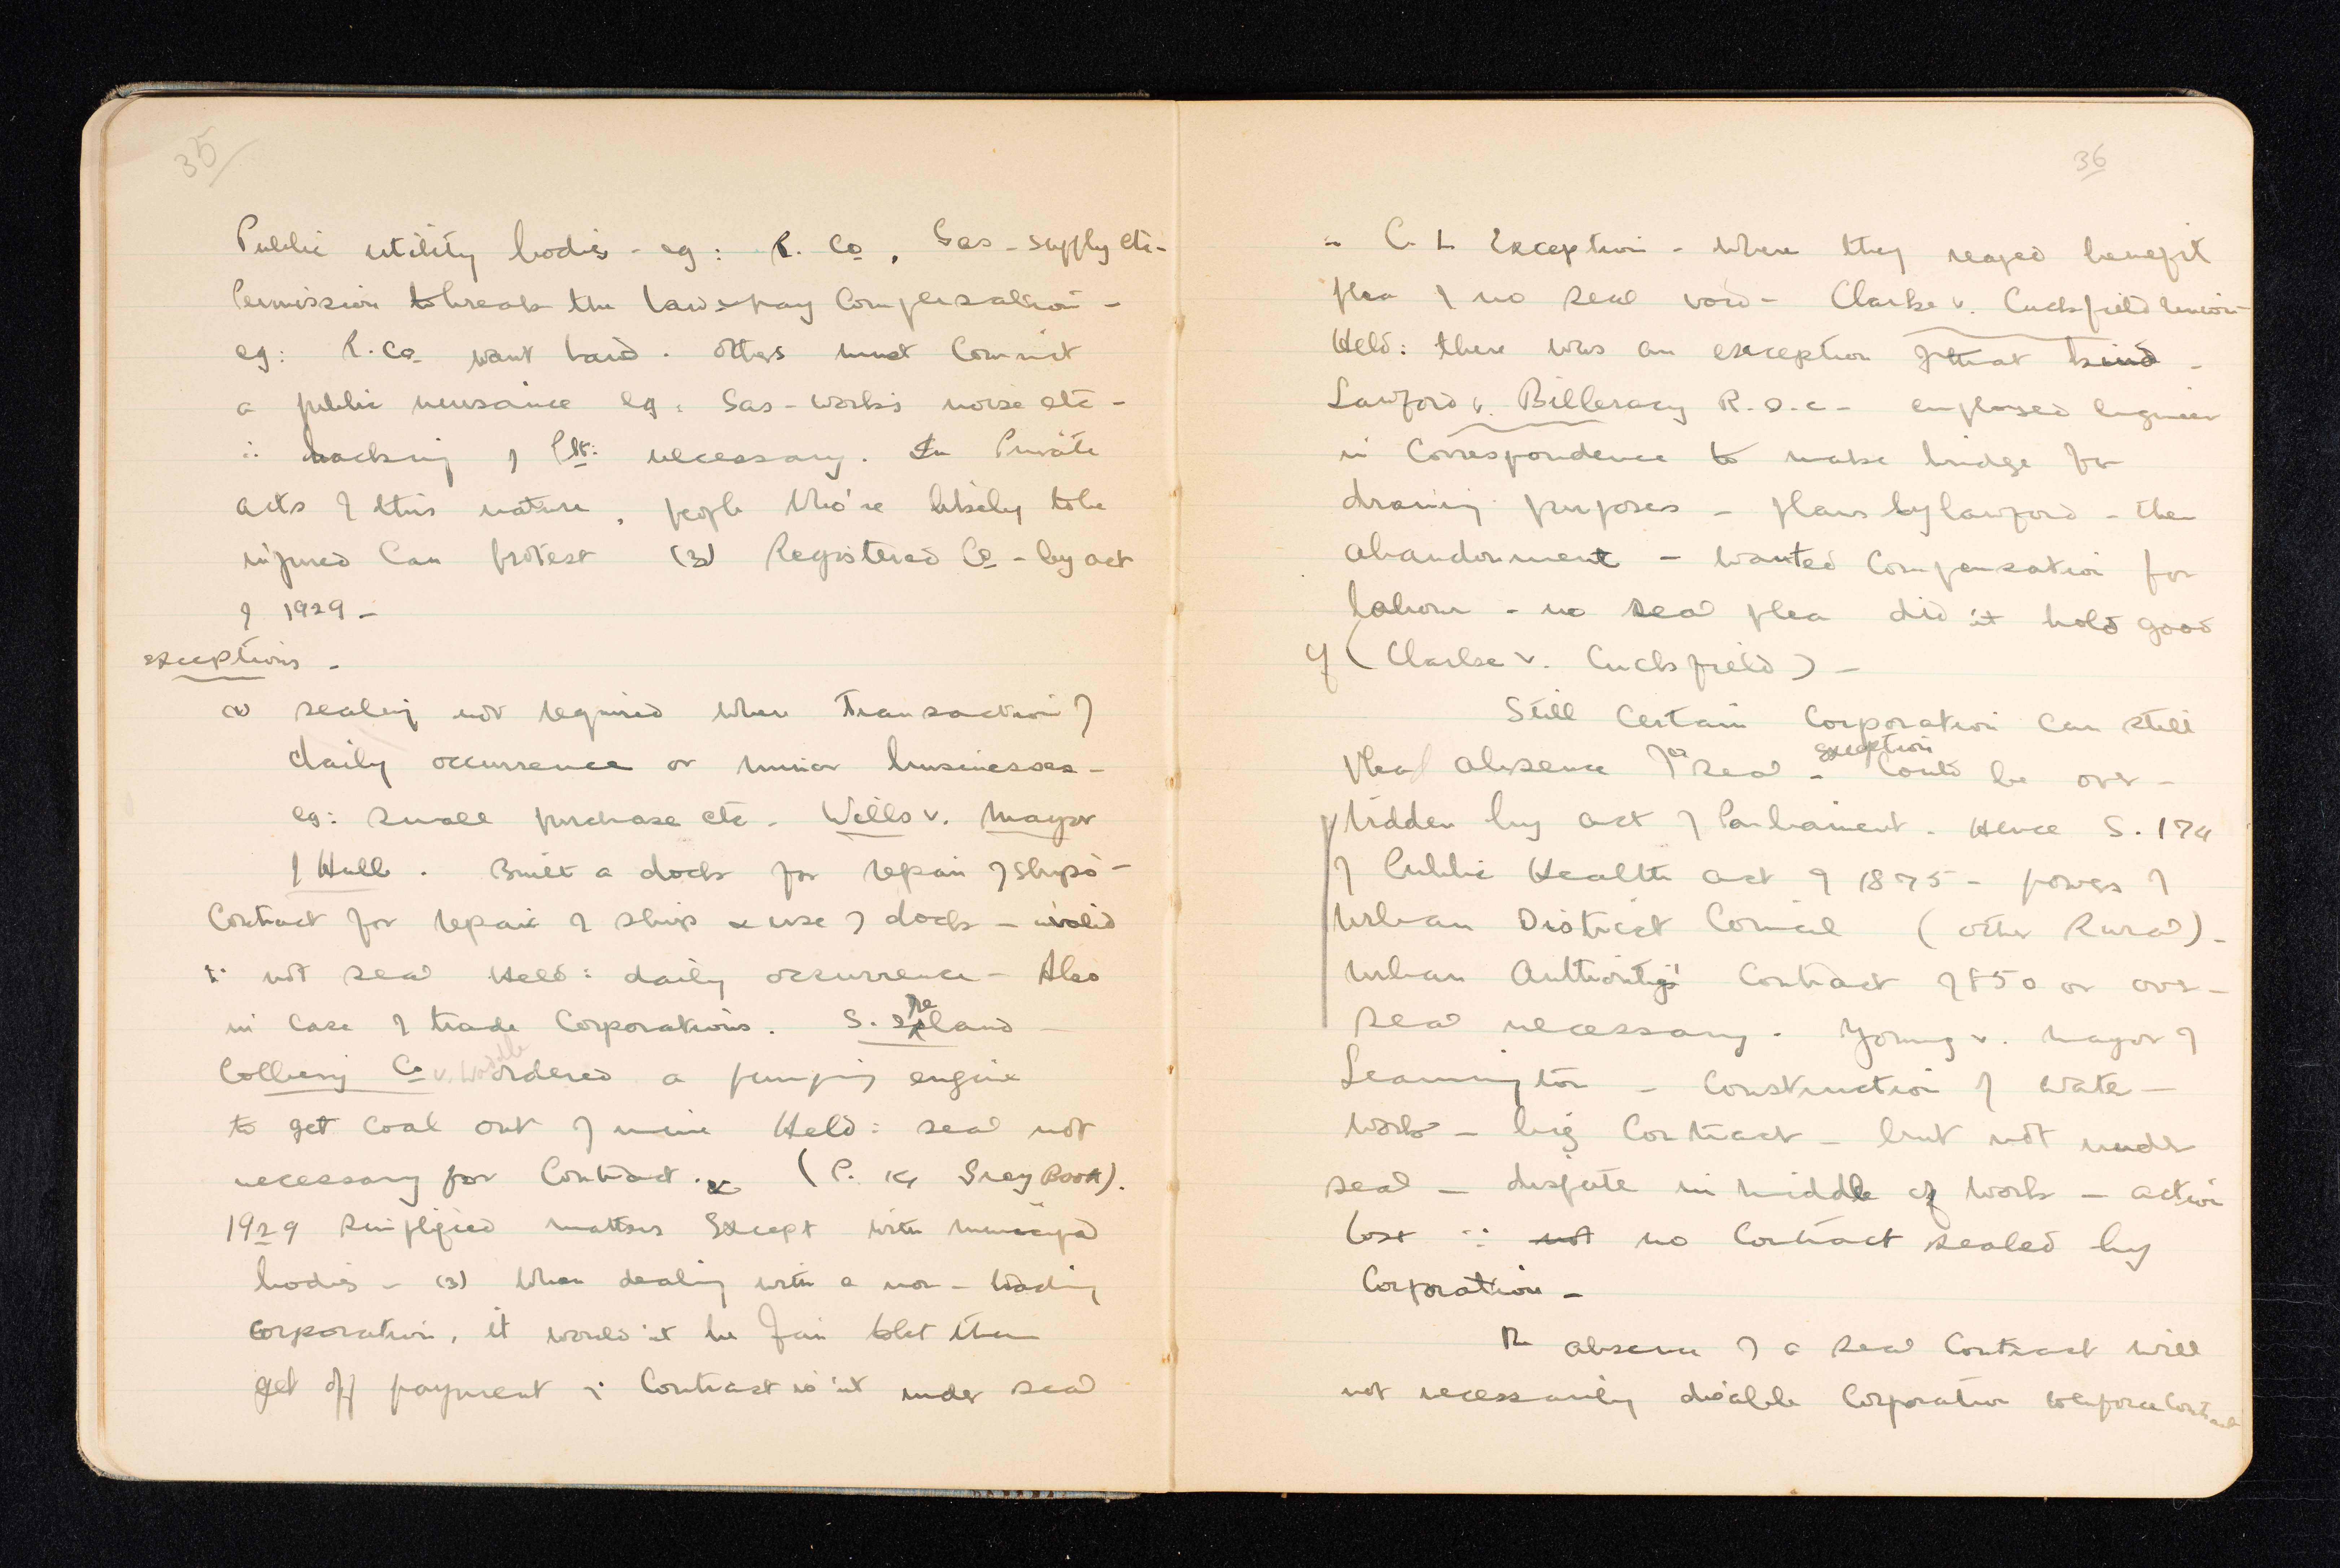 35
Public utility bodies - eg: R. Co, Gas-supply etc-
Permission to break the law & pay Compensation -
eg: R. Co want land. Others must Commit
a public nuisance eg: Gas-works noise etc -
∴ backing of Plt: necessary. In Private
acts of this nature, people who're likely to be
injured Can protest (3) Registered Co - by act
of 1929 -
exceptions -
(1) sealing not required when Transaction of
daily occurrence or minor businesses -
eg: small purchase etc - Wells v. Mayor
of Hull. Built a dock for repair of ships -
Contract for repair of ship & use of dock - invalid
∵ not seal Held: daily occurrence - Also
in case of trade Corporations. S. Ireland
Colliery Co v. Waddle ordered a pumping engine
to get coal out of mine Held: seal not
necessary for Contract. (P. 14 Grey Book).
1929 simplified matters Except with municipal
bodies - (3) When dealing with a non-trading
corporation, it would'nt be fair to let them
get off payment ∵ Contract is'nt under seal
36
∴ C. L Exception - where they reaped benefit
plea of no seal void - Clarke v. Cuckfield Union -
Held: there was an exception of that kind -
Lawford v. Billeracy R.D.C - employed engineer
in Correspondence to make bridge for
draining purposes - plans by Lawford - then
abandonment - wanted Compensation for
labour - no seal plea did'nt hold good
cf (Clarke v. Cuckfield) -
Still Certain Corporation can still
plead absence of a seal - exception Could be over-
ridden by act of Parliament. Hence S. 174
of Public Health act of 1875 - powers of
Urban District Council (other Rural) -
Urban Authority's Contract of £50 or over -
seal necessary. Young v. Mayor of
Leamington - Construction of water-
work - big Contract - but not under
seal - dispute in middle of work - action
lost ∵ not no Contract sealed by
Corporation -
The absence of a seal Contract will
not necessarily disable Corporation to enforce Contract